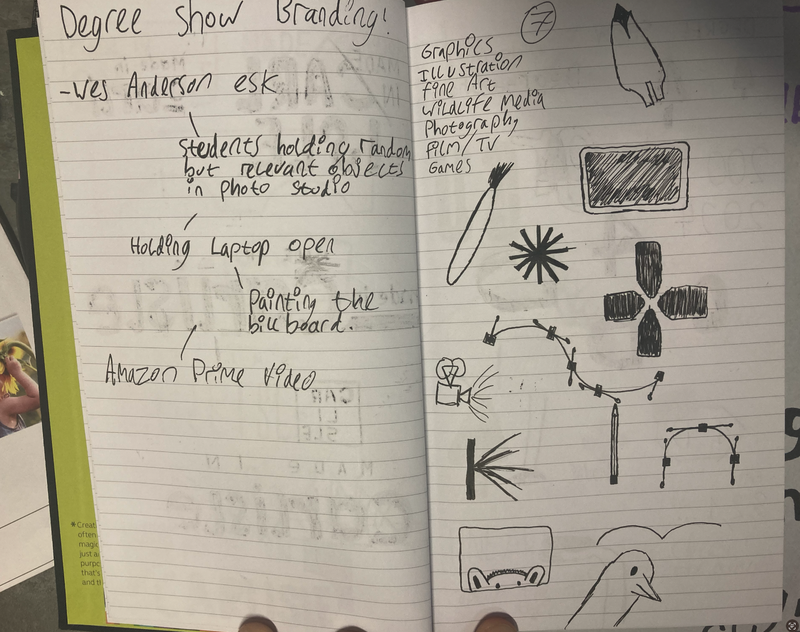 Degree Show Branding!
-Wes Anderson esk
Students holding random
but relevant objects
in photo studio
Holding Laptop open
Painting the
billboard.
Amazon Prime Video
7
Graphics
Illustration
Fine Art
Wildlife Media
Photography
Film/TV
Games
*Creat
often
magic
just a
purpo
that's
and th